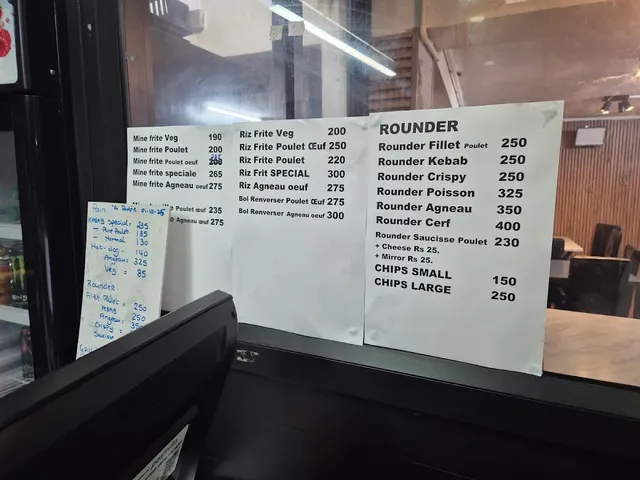 Mine frite Veg 190
Mine frite Poulet 200
Mine frite Poulet oeuf
Mine frite speciale 265
Mine frite Agneau oeuf 275
Poulet Œuf 235
Agneau oeuf 275
Riz Frite Veg 200
Riz Frite Poulet Œuf 250
Riz Frite Poulet 220
Riz Frit SPECIAL 300
Riz Agneau oeuf 275
Bol Renverser Poulet Œuf 275
Bol Renverser Agneau oeuf 300
ROUNDER
Rounder Fillet Poulet 250
Rounder Kebab 250
Rounder Crispy 250
Rounder Poisson 325
Rounder Agneau 350
Rounder Cerf 400
Rounder Saucisse Poulet 230
+ Cheese Rs 25.
+ Mirror Rs 25.
CHIPS SMALL 150
CHIPS LARGE 250
Pain 01-10-25
Kebab Special = 235
Pure Poulet 185
Normal 130
Hot-dog - 140
Agneau = 325
Veg = 85
Rounder
Fillet Poulet = 250
Kebab 250
Agneau
Crispy =
Saucisse